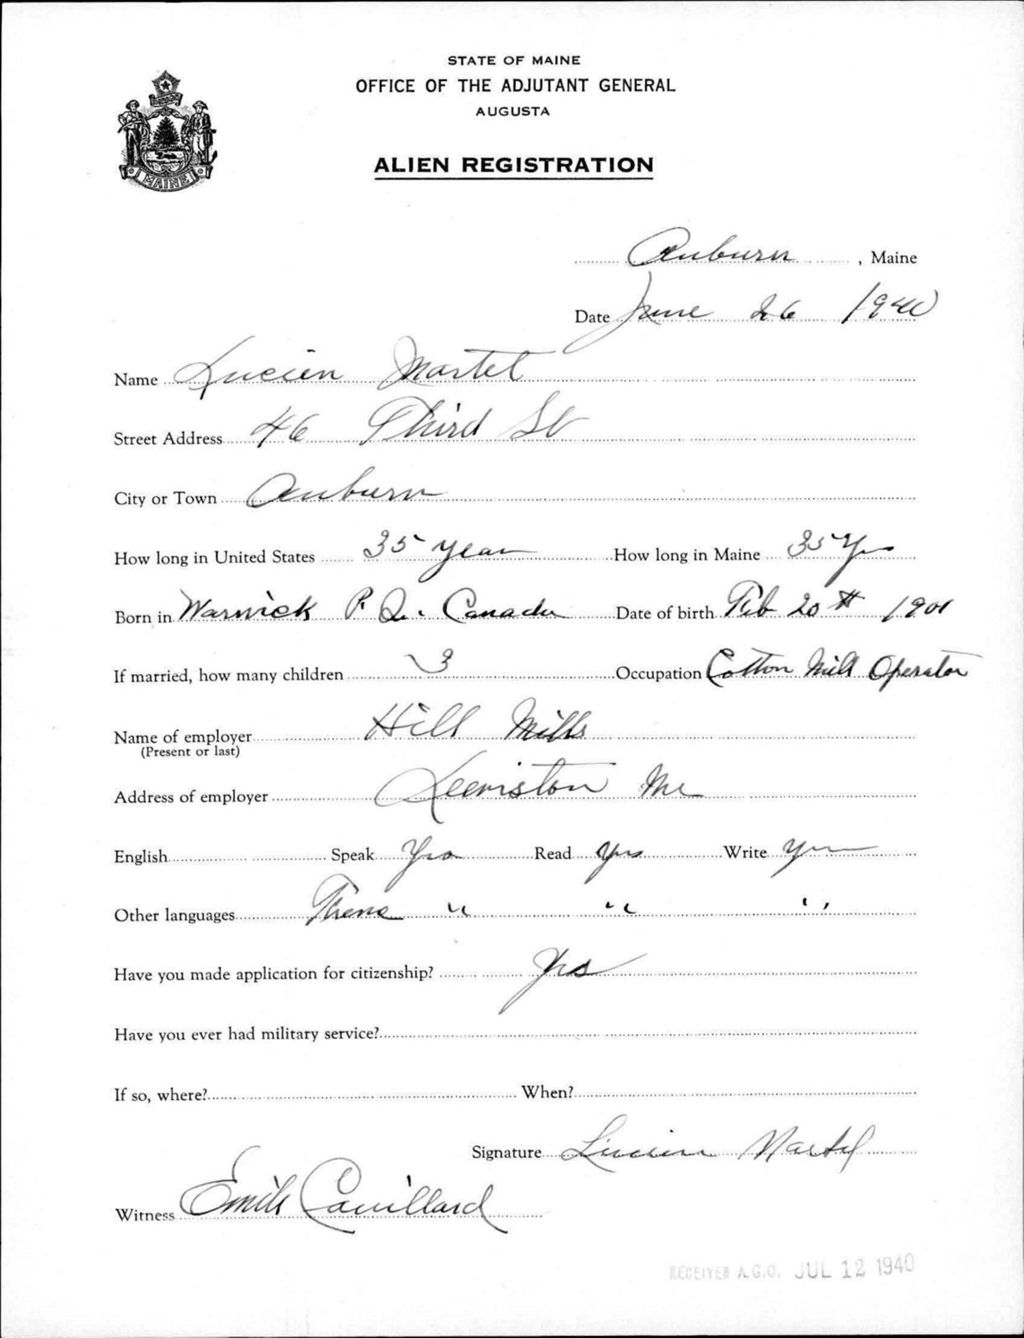 STATE OF MAINE
OFFICE OF THE ADJUTANT GENERAL
AUGUSTA
ALIEN REGISTRATION
MAINE
Auburn, Maine
Date June 26 1940
Name Lucien Martel
Street Address 46 Third St
City or Town Auburn
How long in United States 35 year How long in Maine 35 Yrs
Born in Warwick P. Q. Canada Date of birth Feb 20th 1901
If married, how many children 3 Occupation Cotton Mill Operator
Name of employer Hill Mills
(Present or last)
Address of employer Lewiston Me
English Speak Yes Read Yes Write Yes
Other languages " " "
Have you made application for citizenship? Yes
Have you ever had military service?
If so, where? When?
Signature Lucien Martel
Witness Emile
RECEIVED A.G.O. JUL 12 1940